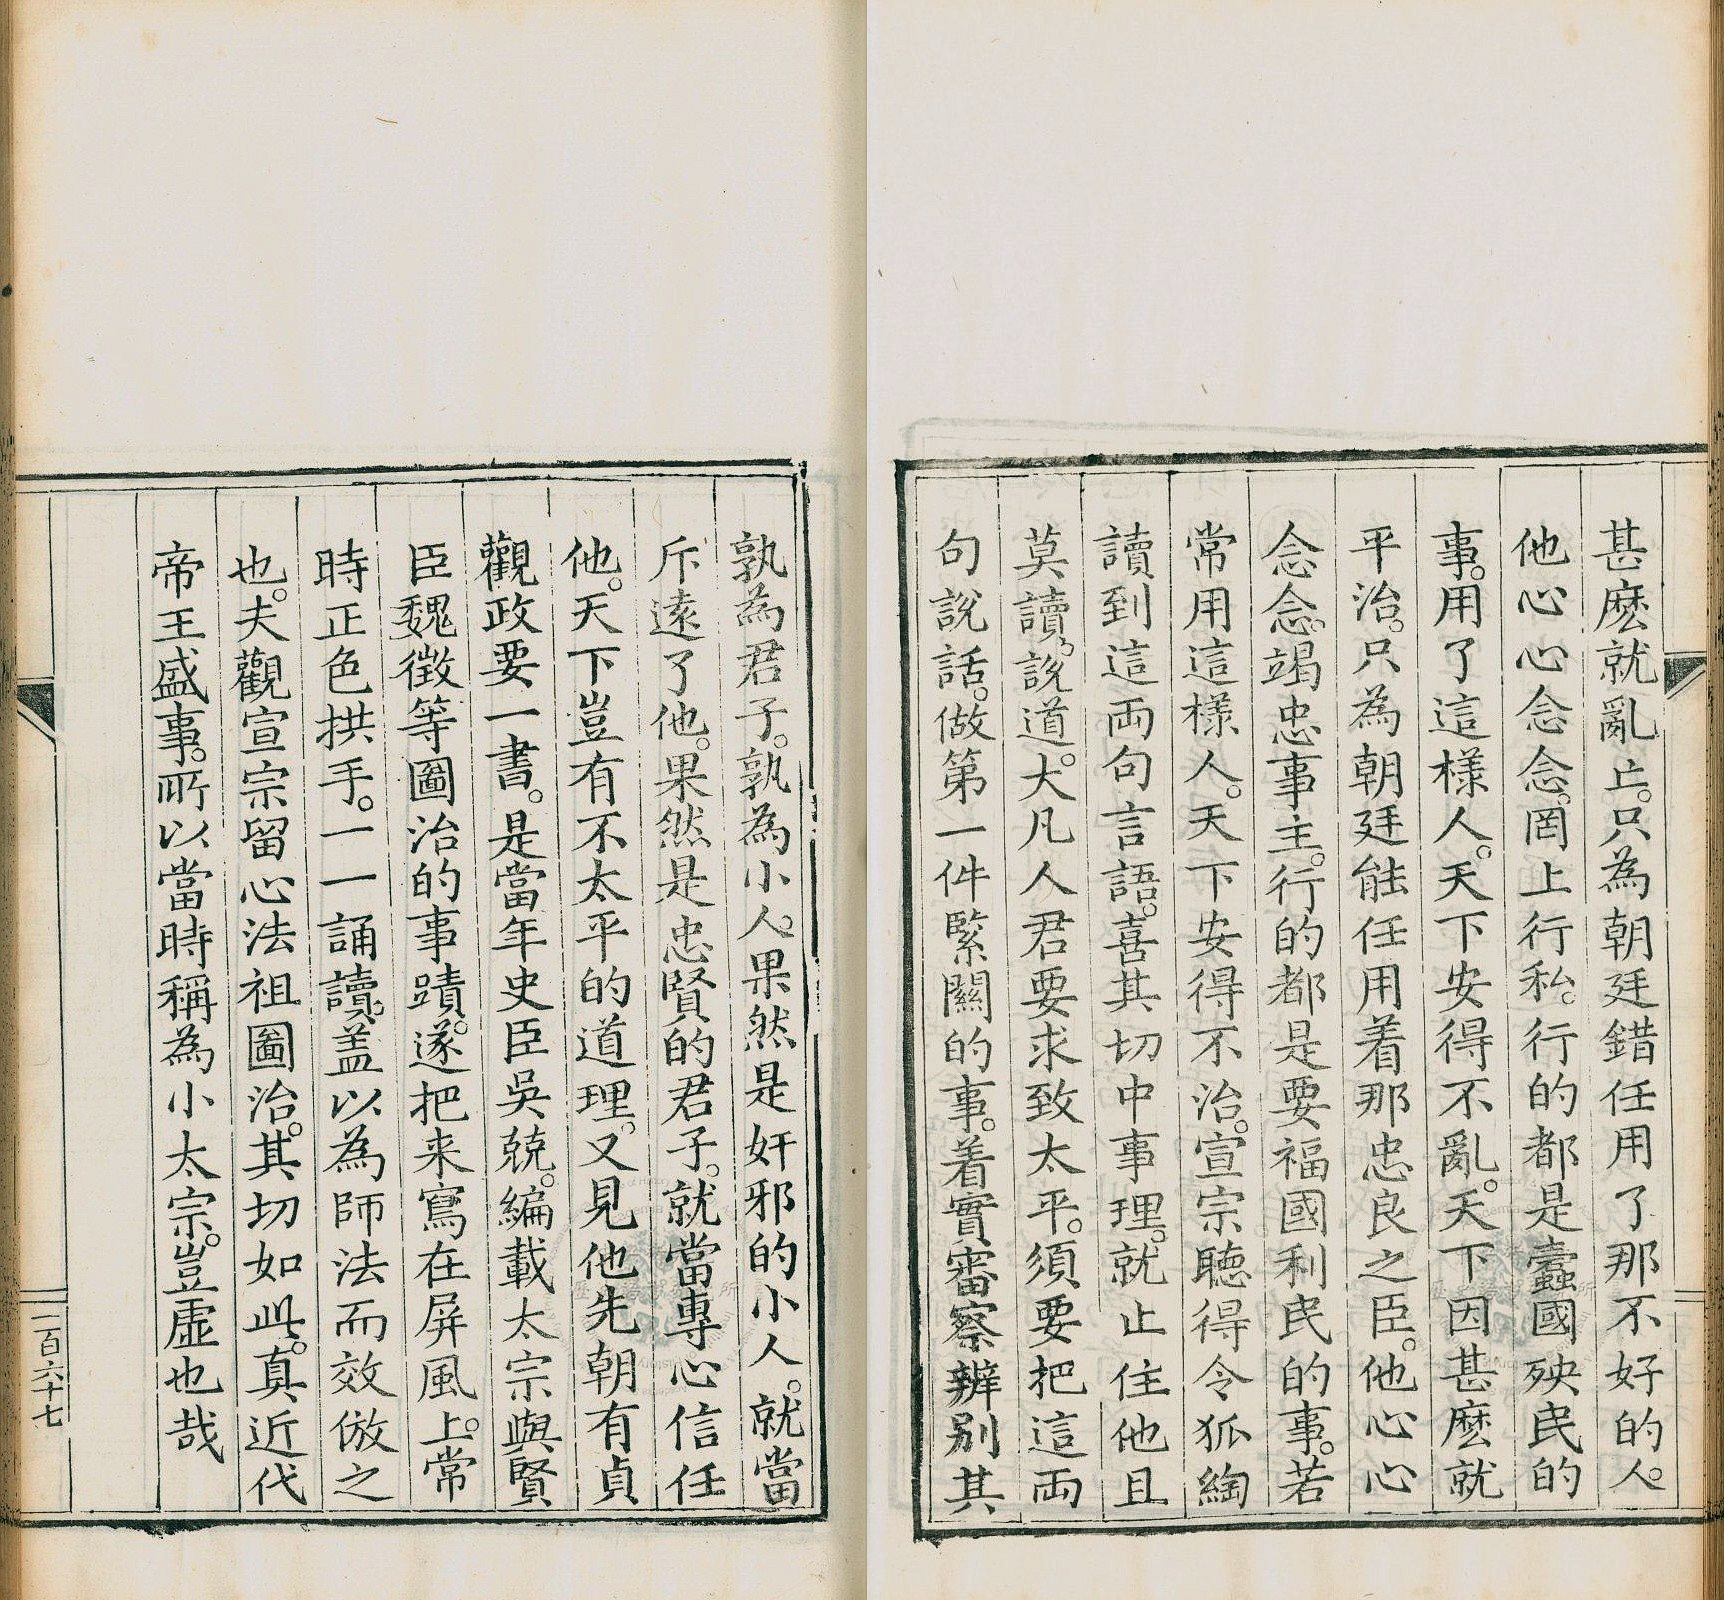 甚麽就亂亡。只為朝廷錯任用了那不好的人。
他心心念念。罔上行私。行的都是蠹國殃民的
事。用了這樣人。天下安得不亂。天下因甚麽就
平治。只為朝廷能任用着那忠良之臣。他心心
念念。竭忠事主。行的都是要福國利民的事。若
常用這樣人。天下安得不治。宣宗聽得令狐綯
讀到這兩句言語。喜其切中事理。就止住他且
莫讀。說道。大凡人君要求致太平。須要把這兩
句說話。做第一件緊關的事。着實審察辨别其
孰為君子。孰為小人。果然是奸邪的小人。就當
斥遠了他。果然是忠賢的君子。就當專心信任
他。天下豈有不太平的道理。又見他先朝有貞
觀政要一書。是當年史臣吳兢。編載太宗與賢
臣魏徵等圖治的事蹟。遂把来寫在屏風上。常
時正色拱手。一一誦讀。盖以為師法而效倣之
也。夫觀宣宗留心法祖圖治。其切如此。真近代
帝王盛事。所以當時稱為小太宗。豈虛也哉
二百六十七